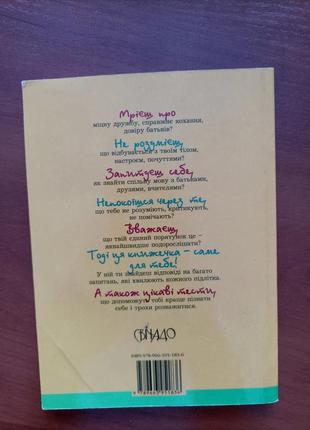 Мрієш про
міцну дружбу, справжнє кохання,
довіру батьків?
Не розумієш,
що відбувається з твоїм тілом,
настроєм, почуттями?
Запитуєш себе,
як знайти спільну мову з батьками,
друзями, вчителями?
Непокоїшся через те,
що тебе не розуміють, критикують,
не помічають?
Вважаєш,
що твій єдиний порятунок це –
якнайшвидше подорослішати?
Тоді ця книжечка – саме
для тебе!
У ній ти знайдеш відповіді на багато
запитань, які хвилюють кожного підлітка.
А також цікаві тести,
що допоможуть тобі краще пізнати
себе і трохи розважитися.
СВІЧАДО